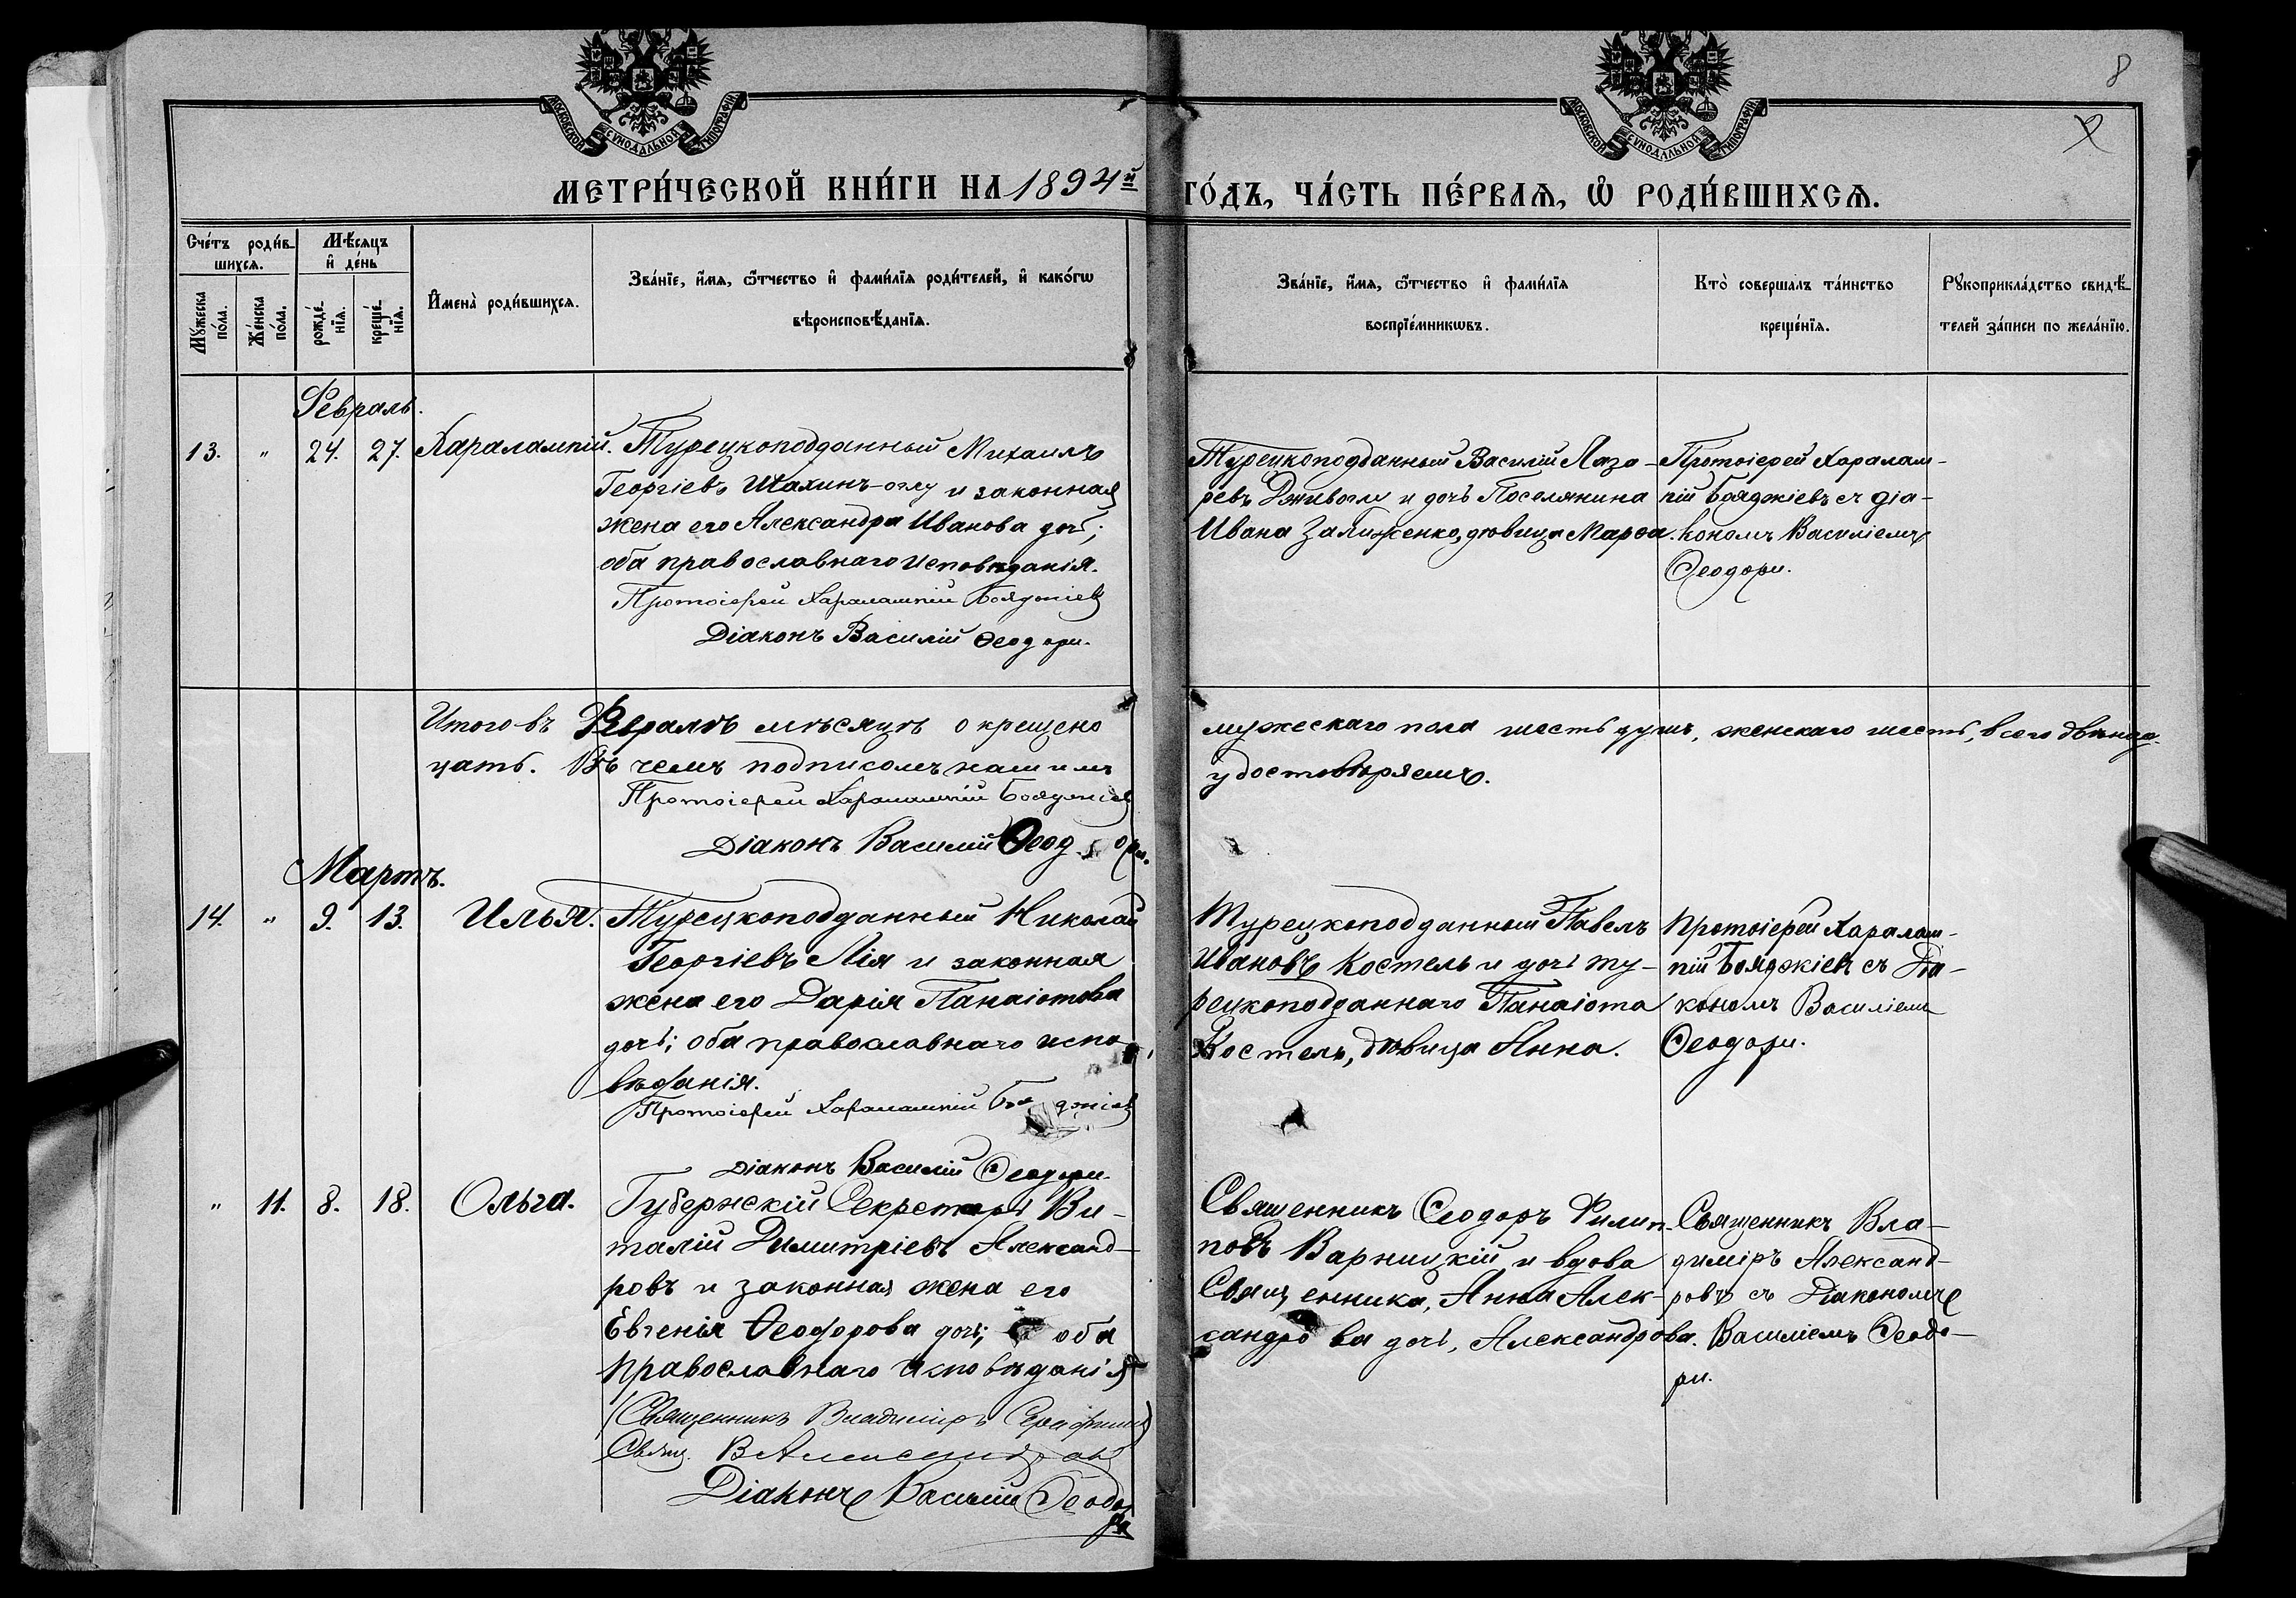 МОСКОВСКОЙ СѴНОДАЛЬНОЙ ТИПОГРАФІИ
МОСКОВСКОЙ СѴНОДАЛЬНОЙ ТИПОГРАФІИ
8
МЕТРИ́ЧЕСКОЙ КНИ́ГИ НА 1894й ГО́ДЪ, ЧА́СТЬ ПЕ́РВАѦ, Ѡ РОДИ́ВШИХСѦ.
Сче́тъ роди́в-
шихсѧ.
Мꙋ́жеска по́ла.
Же́нска по́ла.
Мѣ́сѧцъ
и҆ де́нь
рожде́-
нїѧ.
креще́-
нїѧ.
И҆мена̀ роди́вшихсѧ.
Зва́нїе, и҆́мѧ, ѻ҆́тчество и҆ фами́лїѧ роди́телей, и҆ како́гѡ
вѣроисповѣ́данїѧ.
Зва́нїе, и҆́мѧ, ѻ҆́тчество и҆ фами́лїѧ
воспрїе́мникѡвъ.
Кто̀ соверша́лъ та́инство
креще́нїѧ.
Рꙋкоприкла́дство свидѣ́-
телей за́писи по жела́нїю.
Февраль.
13. " 24. 27. Харалампій.
Турецкоподданный Михаилъ
Георгіевъ Шахинъ-оглу и законная
жена его Александра Иванова дочь;
оба православнаго исповѣданія.
Протоіерей Харалампій Бояджіевъ
Діаконъ Василій Ѳеодори.
Турецкоподданный Василій Лаза-
ревъ Дживоглу и дочь Поселянина
Ивана Залиженко, дѣвица Марѳа.
Протоіерей Харалам-
пій Бояджіевъ съ діа-
кономъ Василіемъ
Ѳеодори.
Итого въ Февралѣ мѣсяцѣ окрещено мужескаго пола шесть душъ, женскаго шесть, всего двѣнад-
цать. Въ чемъ подписомъ нашимъ удостовѣряемъ.
Протоіерей Харалампій Бояджіевъ
Діаконъ Василій Ѳеодори.
Мартъ.
14. " 9. 13. Илья.
Турецкоподданный Николай
Георгіевъ Лія и законная
жена его Дарія Панаіотова
дочь; оба православнаго испо-
вѣданія.
Протоіерей Харалампій Бояджіевъ
Діаконъ Василій Ѳеодори.
Турецкоподданный Павелъ
Ивановъ Костель и дочь ту-
рецкоподданнаго Панаіота
Костель, дѣвица Анна.
Протоіерей Харалам-
пій Бояджіевъ съ Діа-
кономъ Василіемъ
Ѳеодори.
" 11. 8. 18. Ольга.
Губернскій Секретарь Ви-
талій Димитріевъ Александ-
ровъ и законная жена его
Евгенія Ѳеодорова дочь; оба
православнаго исповѣданія
Священникъ Владиміръ
Свящ. В Александровъ
Діаконъ Василій Ѳеодори
Священникъ Ѳеодоръ Филип-
повъ Варницкій и вдова
Священника, Анна Алек-
сандрова дочь, Александрова.
Священникъ Вла-
диміръ Александ-
ровъ съ Діакономъ
Василіемъ Ѳеодо-
ри.